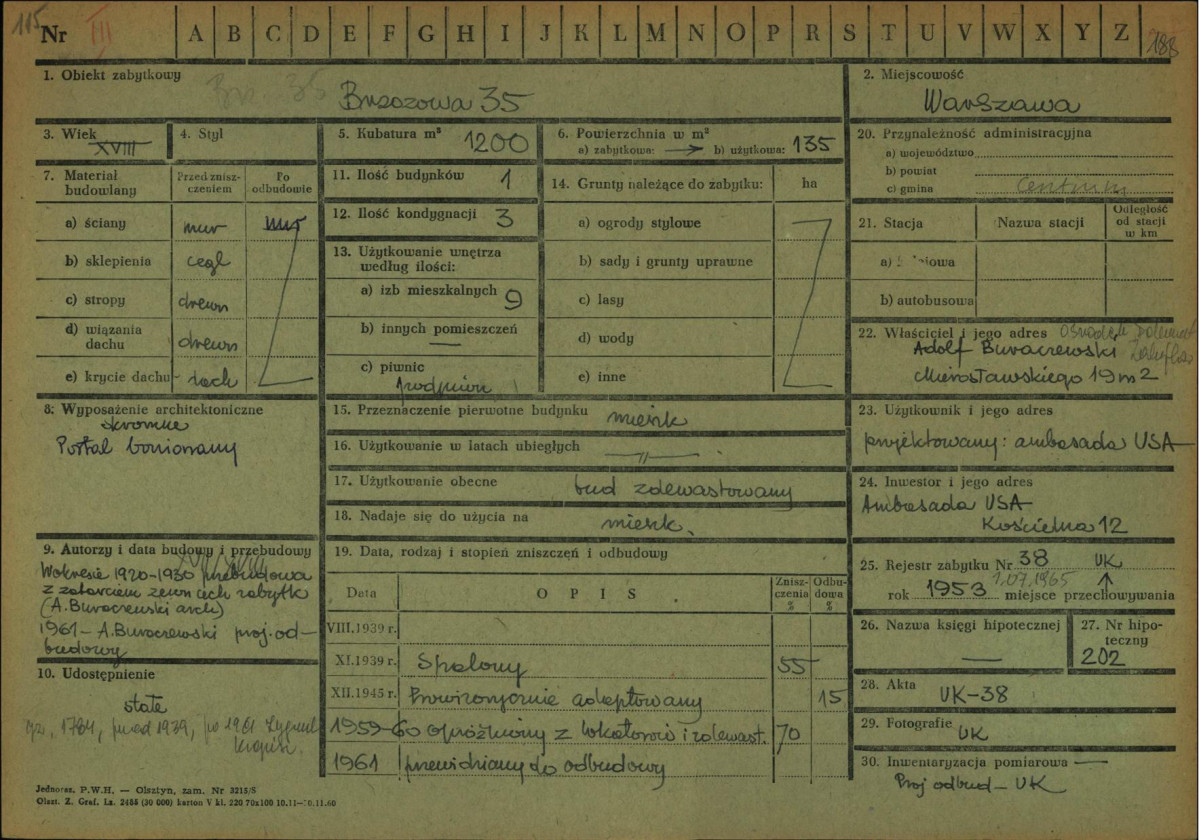 115
Nr III A B C D E F G H I J K L M N O P R S T U V W X Y Z 188
1. Obiekt zabytkowy
Brz. 35 Brzozowa 35
2. Miejscowość
Warszawa
3. Wiek
XVIII
4. Styl
5. Kubatura m³ 1200
6. Powierzchnia w m²
a) zabytkowa: → b) użytkowa: 135
20. Przynależność administracyjna
a) województwo
b) powiat
c) gmina Centrum
7. Materiał budowlany
Przed zniszczeniem
Po odbudowie
a) ściany mur mur
b) sklepienia cegl
c) stropy drewn
d) wiązania dachu drewn
e) krycie dachu
11. Ilość budynków 1
12. Ilość kondygnacji 3
13. Użytkowanie wnętrza
według ilości:
a) izb mieszkalnych 9
b) innych pomieszczeń —
c) piwnic
14. Grunty należące do zabytku: ha
a) ogrody stylowe
b) sady i grunty uprawne
c) lasy
d) wody
e) inne
21. Stacja
Nazwa stacji
Odległość
od stacji
w km
b) autobusowa
22. Właściciel i jego adres
Adolf Buraczewski
Mierosławskiego 19 m 2
8. Wyposażenie architektoniczne
skromne
Portal boniowany
15. Przeznaczenie pierwotne budynku mieszk
16. Użytkowanie w latach ubiegłych —"—
17. Użytkowanie obecne bud zdewastowany
18. Nadaje się do użycia na mieszk.
23. Użytkownik i jego adres
projektowany: ambasada USA
24. Inwestor i jego adres
Ambasada USA
Kościelna 12
9. Autorzy i data budowy i przebudowy
W okresie 1920-1930 przebudowa
z zatarciem zewn cech zabytk
(A. Buraczewski arch)
1961 - A. Buraczewski proj. od-
budowy
19. Data, rodzaj i stopień zniszczeń i odbudowy
Data
OPIS
Zniszczenia %
Odbudowa %
VIII.1939 r.
XI.1939 r. Spalony 55
XII.1945 r. Prowizorycznie adaptowany 15
1959-60 opróżniony z lokatorów i zdewast. 70
1961 przewidziany do odbudowy
25. Rejestr zabytku Nr 38 UK
1.07.1965
rok 1953 miejsce przechowywania
26. Nazwa księgi hipotecznej —
27. Nr hipo-
teczny
202
28. Akta UK-38
29. Fotografie UK
30. Inwentaryzacja pomiarowa —
Proj odbud - UK
10. Udostępnienie
stałe
1784, przed 1939, po 1961
Jednoraz. P.W.H. — Olsztyn, zam. Nr 3215/S